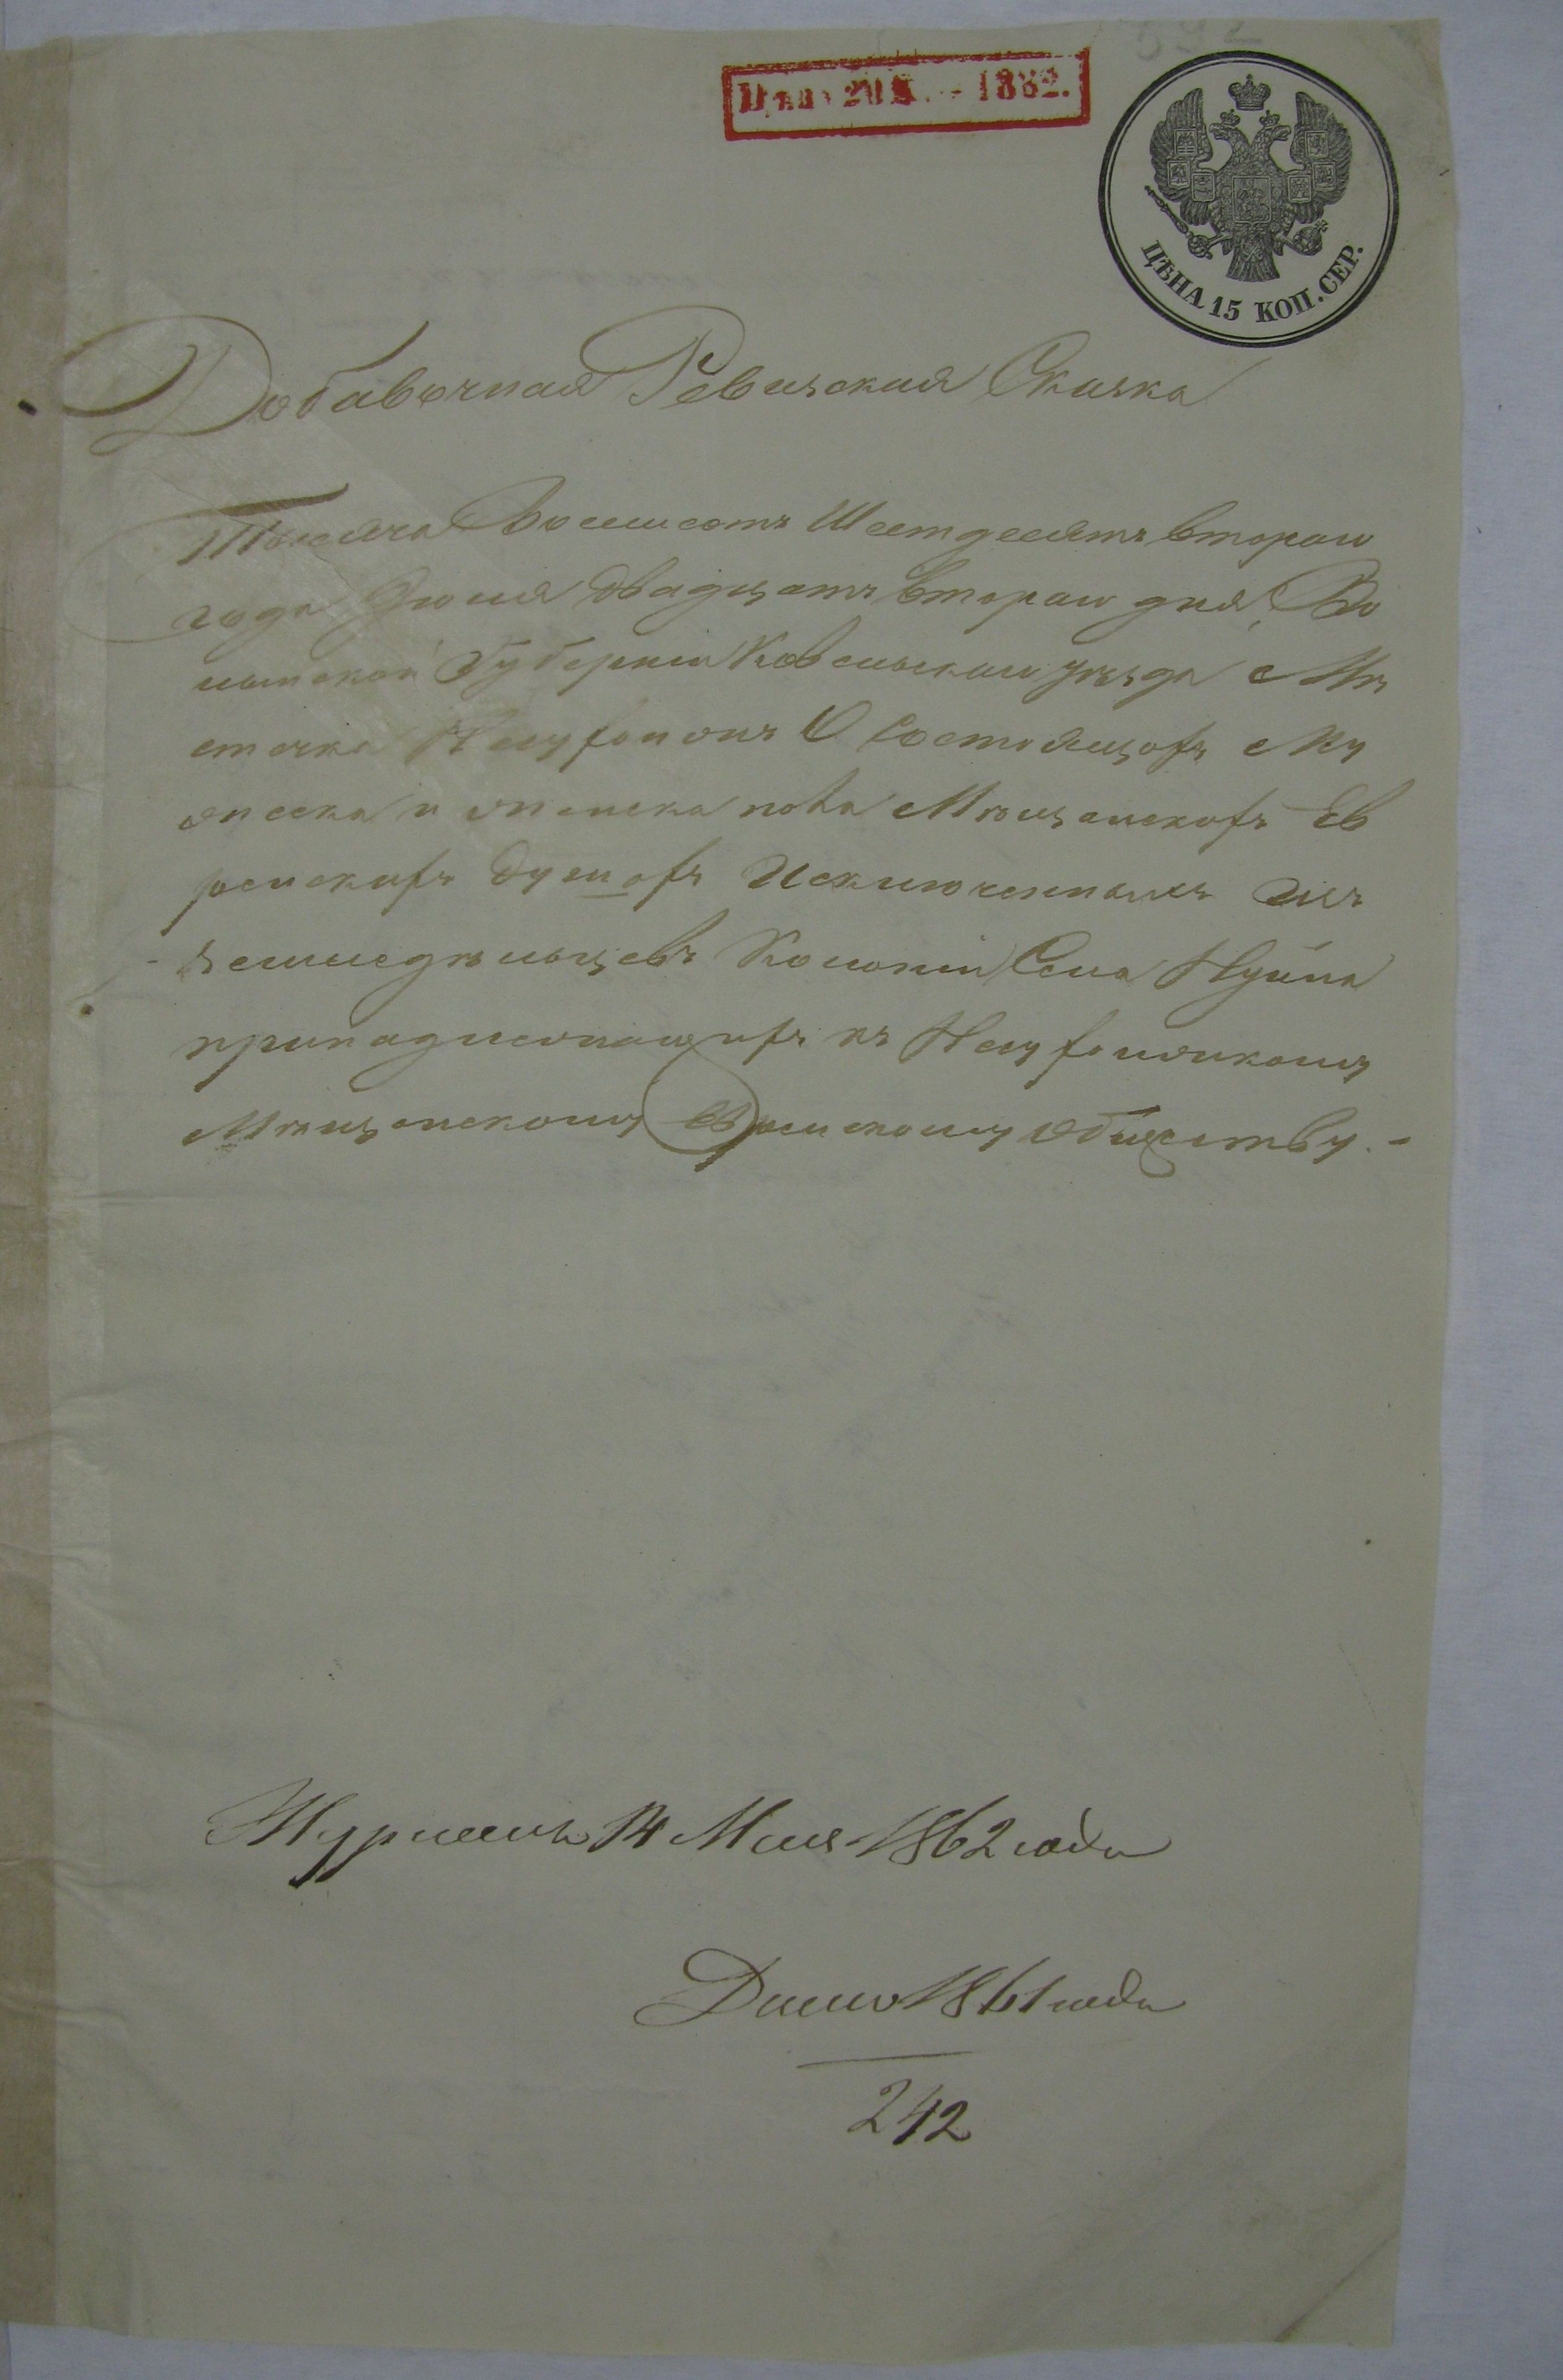 1882.
ЦѢНА 15 КОП. СЕР.
Добавочная Ревизская Сказка
Тысяча Восемсотъ Шестдесятъ втораго
года Июня двадцать втораго дня, Во
лынской Губерніи Ковельскаго уѣзда Мѣ
стечка О состоящихъ Му
жеска и женска пола Мѣщанскихъ Ев
рейскихъ душахъ Исключенныхъ изъ
земледѣльцевъ Колоніи Села Нуйна
принадлежащихъ къ
Мѣщанскому Еврейскому обществу. -
14 Мая 1862 года
Дѣло 1861 года
242